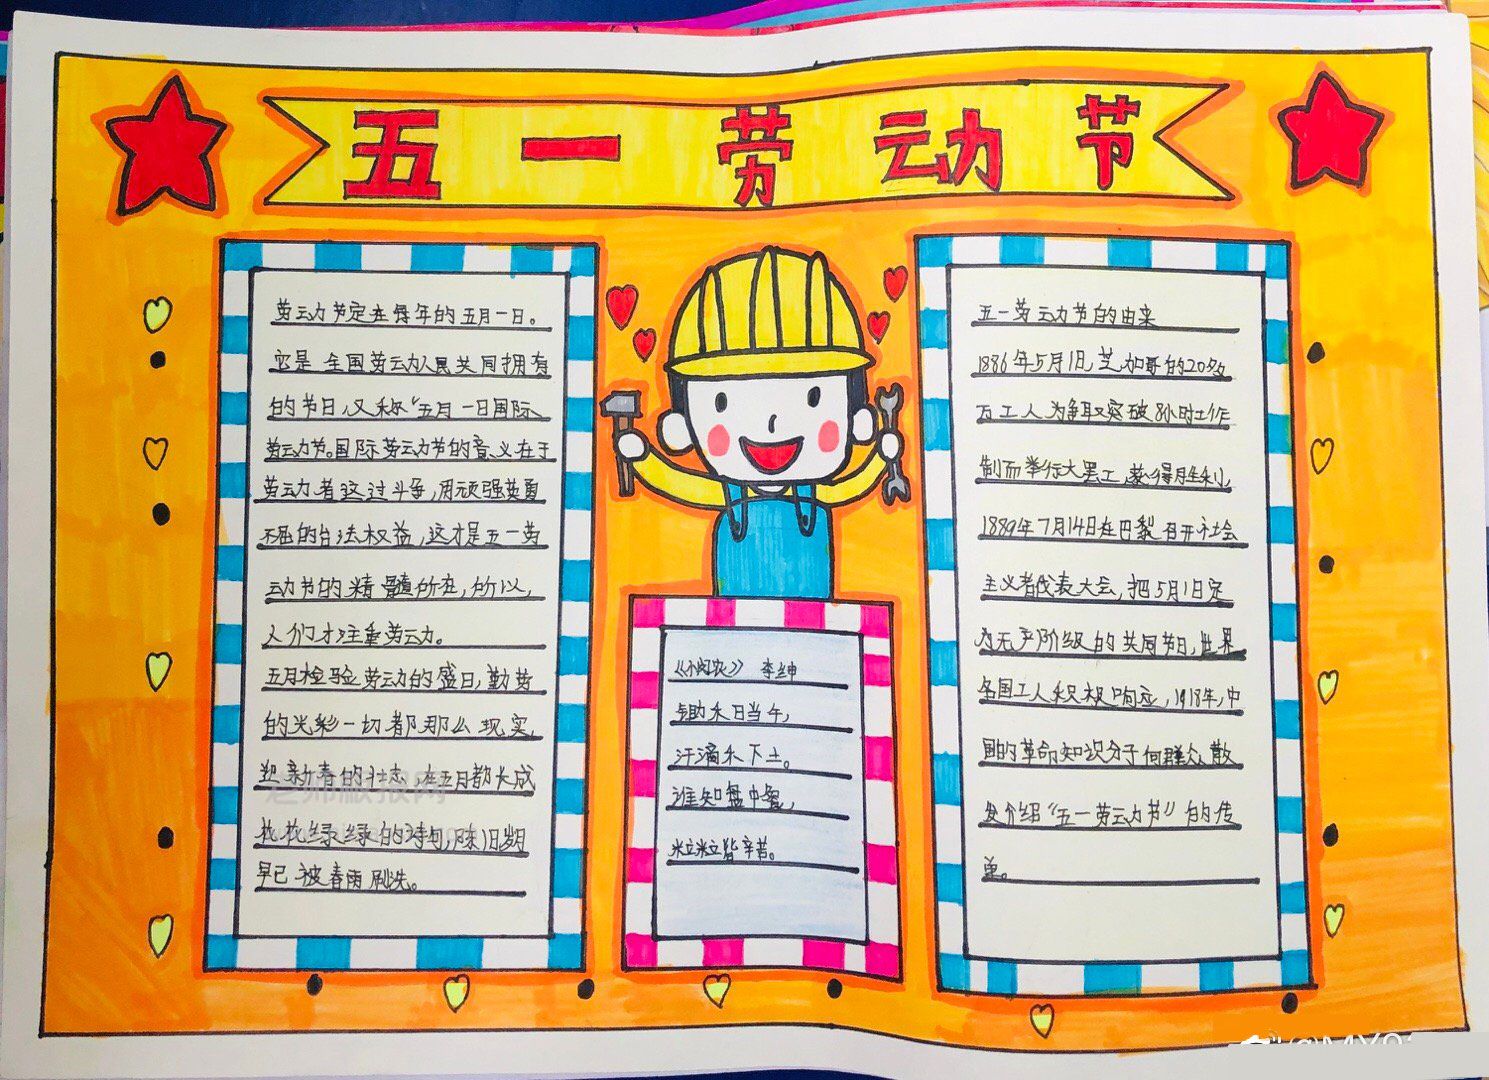 五一劳动节
劳动节定在每年的五月一日。
它是全国劳动人民共同拥有
的节日,又称“五月一日国际
劳动节。国际劳动节的意义在于
劳动者这过斗争,用顽强英勇
不屈的台法权益,这才是五一劳
动节的精髓所在,所以,
人们才注重劳动。
五月检验劳动的盛日,勤劳
的光彩一切都那么现实,
把新春的壮志,在五月都长成
花花绿绿的诗句,陈旧岁月
早已被春雨刷洗。
《小闵农》 李绅
锄禾日当午,
汗滴禾下土。
谁知盘中餐,
粒粒皆辛苦。
五一劳动节的由来
1886年5月1日,芝加哥的20多
万工人为争取突破8小时工作
制而举行大罢工,获得胜利,
1889年7月14日在巴黎召开社会
主义者代表大会,把5月1日定
为无产阶级的共同节日,世界
各国工人积极响应,1918年,中
国的革命知识分子向群众散
发介绍“五一劳动节”的传
单。
老师板报网